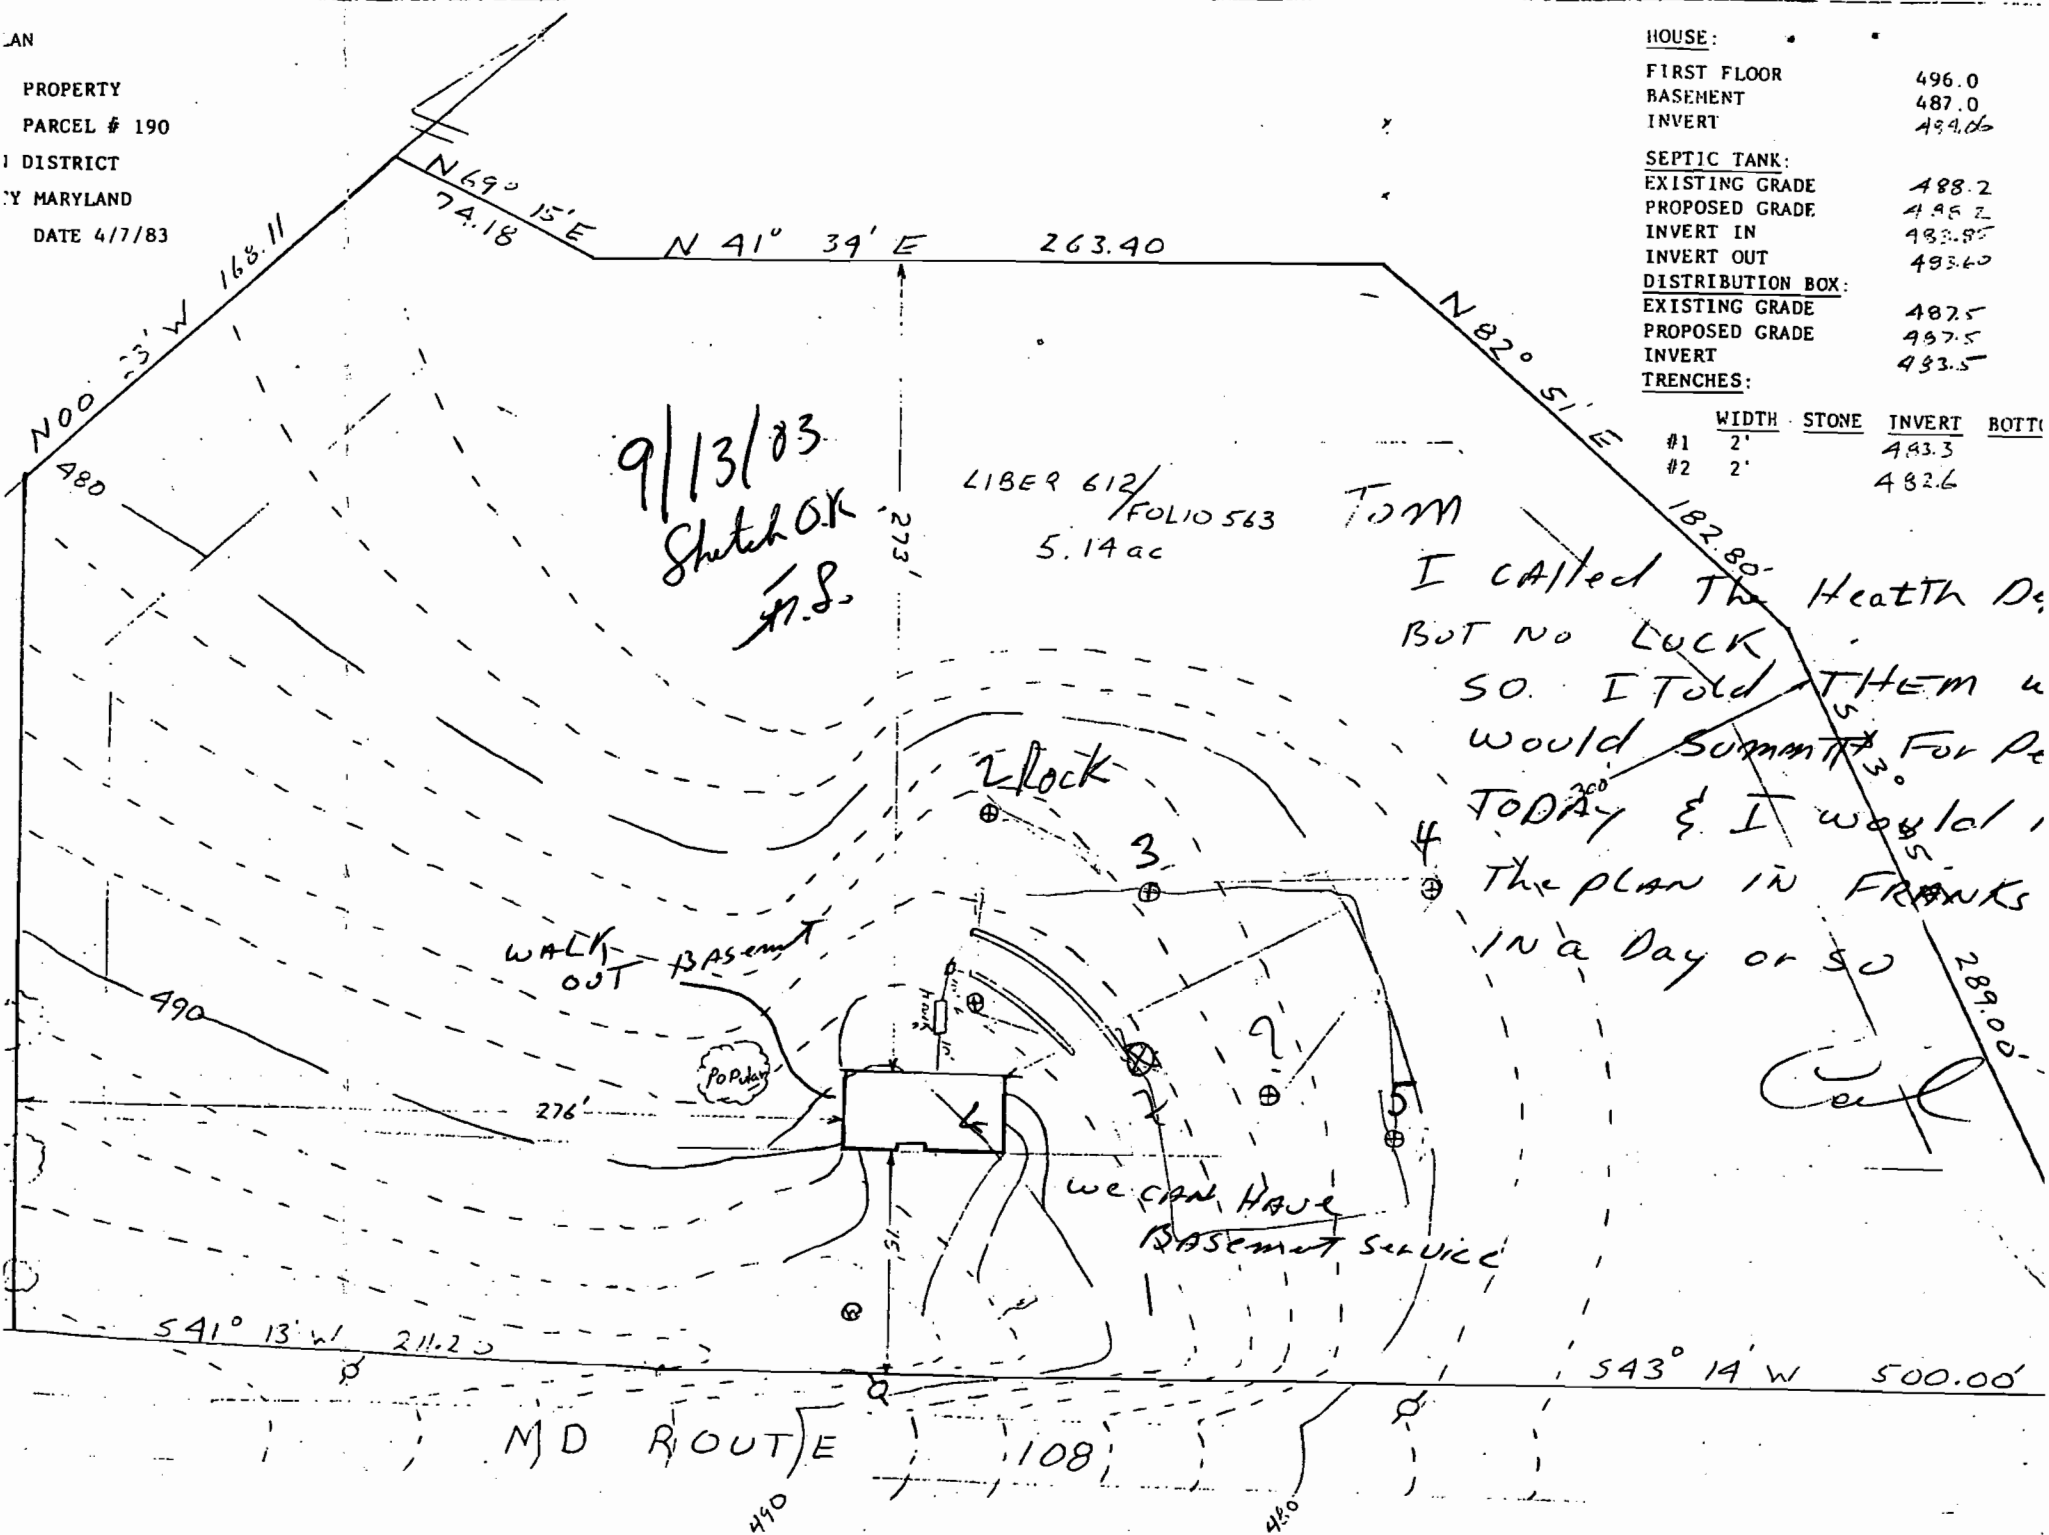 LAN
PROPERTY
PARCEL # 190
DISTRICT
Y MARYLAND
DATE 4/7/83
HOUSE:
FIRST FLOOR 496.0
BASEMENT 487.0
INVERT
SEPTIC TANK:
EXISTING GRADE 488.2
PROPOSED GRADE
INVERT IN 483.85
INVERT OUT 483.60
DISTRIBUTION BOX:
EXISTING GRADE 487.5
PROPOSED GRADE 487.5
INVERT 483.5
TRENCHES:
WIDTH STONE INVERT BOTTO
#1 2' 483.3
#2 2' 482.6
N 69° 15' E
74.18
N 41° 34' E 263.40
N 82° 51' E
182.80
N00 23' W 168.11
480
9/13/83
Sketch O.K.
F.S.
273'
LIBER 612/
FOLIO 563
5.14 ac
Tom
I CAlled The HeatTh De
BUT No LUCK
SO I Told THEM w
would Summit For Pe
TODAY & I would
The PLAN IN FRANKS
IN a Day or SO
Carl
300'
289.00
2 Rock
3
4
WALK
OUT BASemnT
490
PoPular
276'
?
5
we CAN HAVE
BASemenT Service
151'
W
S41° 13' W 211.20
S43° 14' W 500.00'
MD ROUTE 108
490
480